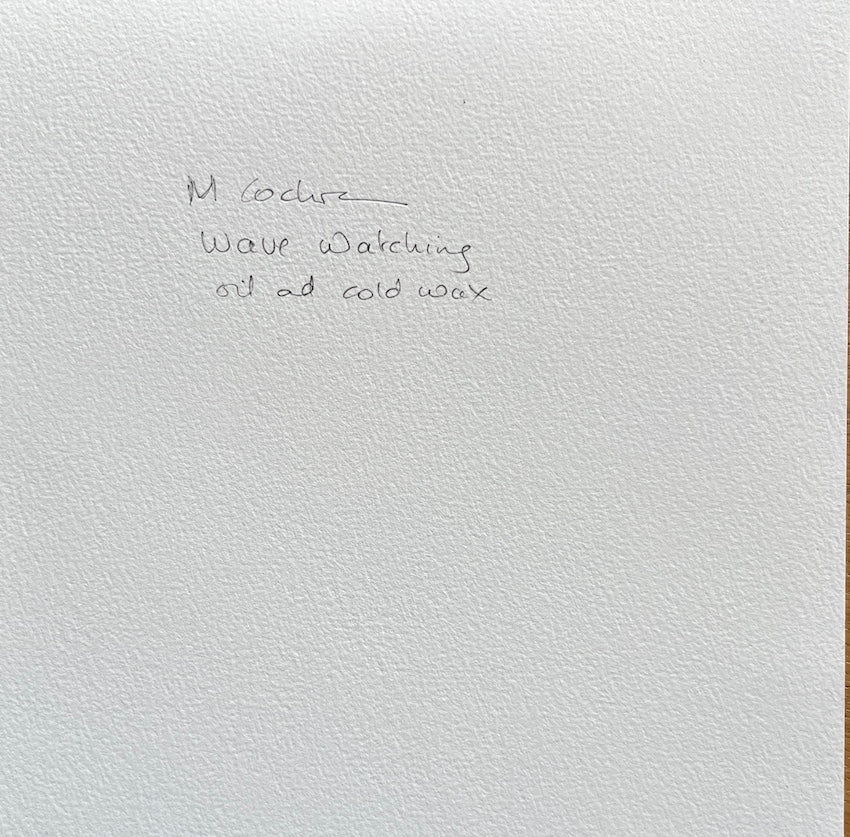 M Cochra
Wave Watching
oil ad cold wax